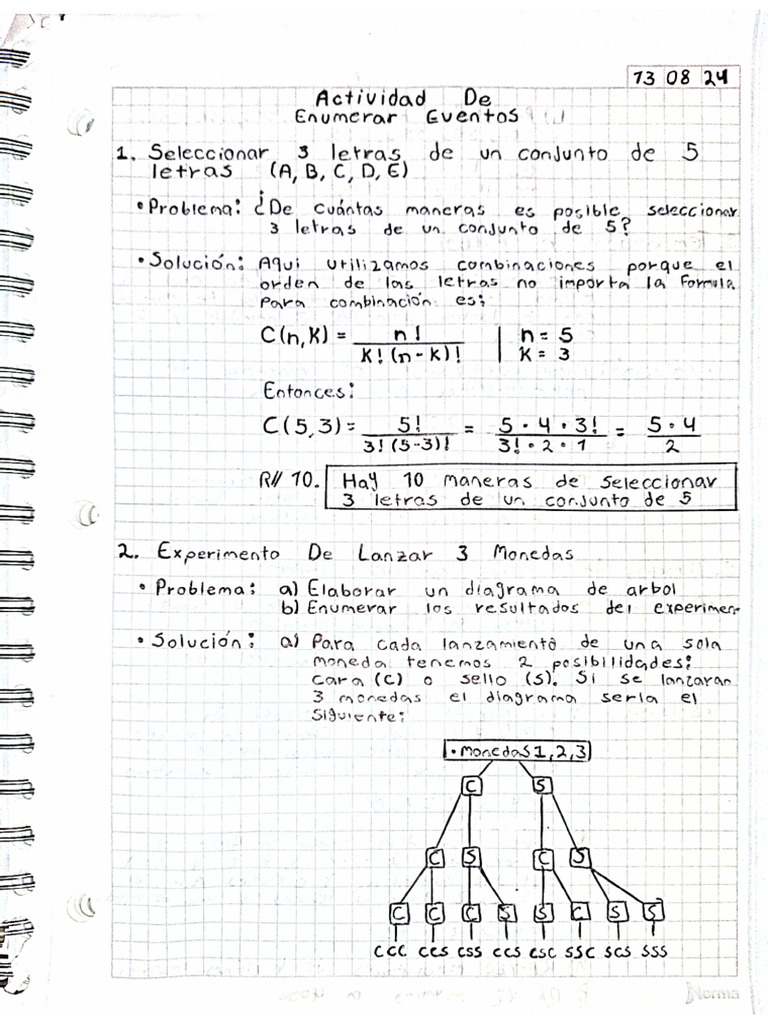 13 08 24
Actividad De
Enumerar Eventos
1. Seleccionar 3 letras de un conjunto de 5
letras (A, B, C, D, E)
• Problema: ¿De cuántas maneras es posible seleccionar
3 letras de un conjunto de 5?
• Solución: Aqui utilizamos combinaciones porque el
orden de las letras no importa la formula
Para combinación es:
C(n,k) = n! / k! (n-k)! | n = 5
| k = 3
Entonces:
C(5,3) = 5! / 3! (5-3)! = 5 • 4 • 3! / 3! • 2 • 1 = 5 • 4 / 2
R// 10. Hay 10 maneras de seleccionar
3 letras de un conjunto de 5
2. Experimento De Lanzar 3 Monedas
• Problema: a) Elaborar un diagrama de arbol
b) Enumerar los resultados del experimen
• Solución: a) Para cada lanzamiento de una sola
moneda tenemos 2 posibilidades:
cara (C) o sello (S). Si se lanzaran
3 monedas el diagrama seria el
siguiente:
• Monedas 1, 2, 3
C S
C S C S
C C C S S C S S
CCC CCS CSS CCS CSC SSC SCS SSS
Norma